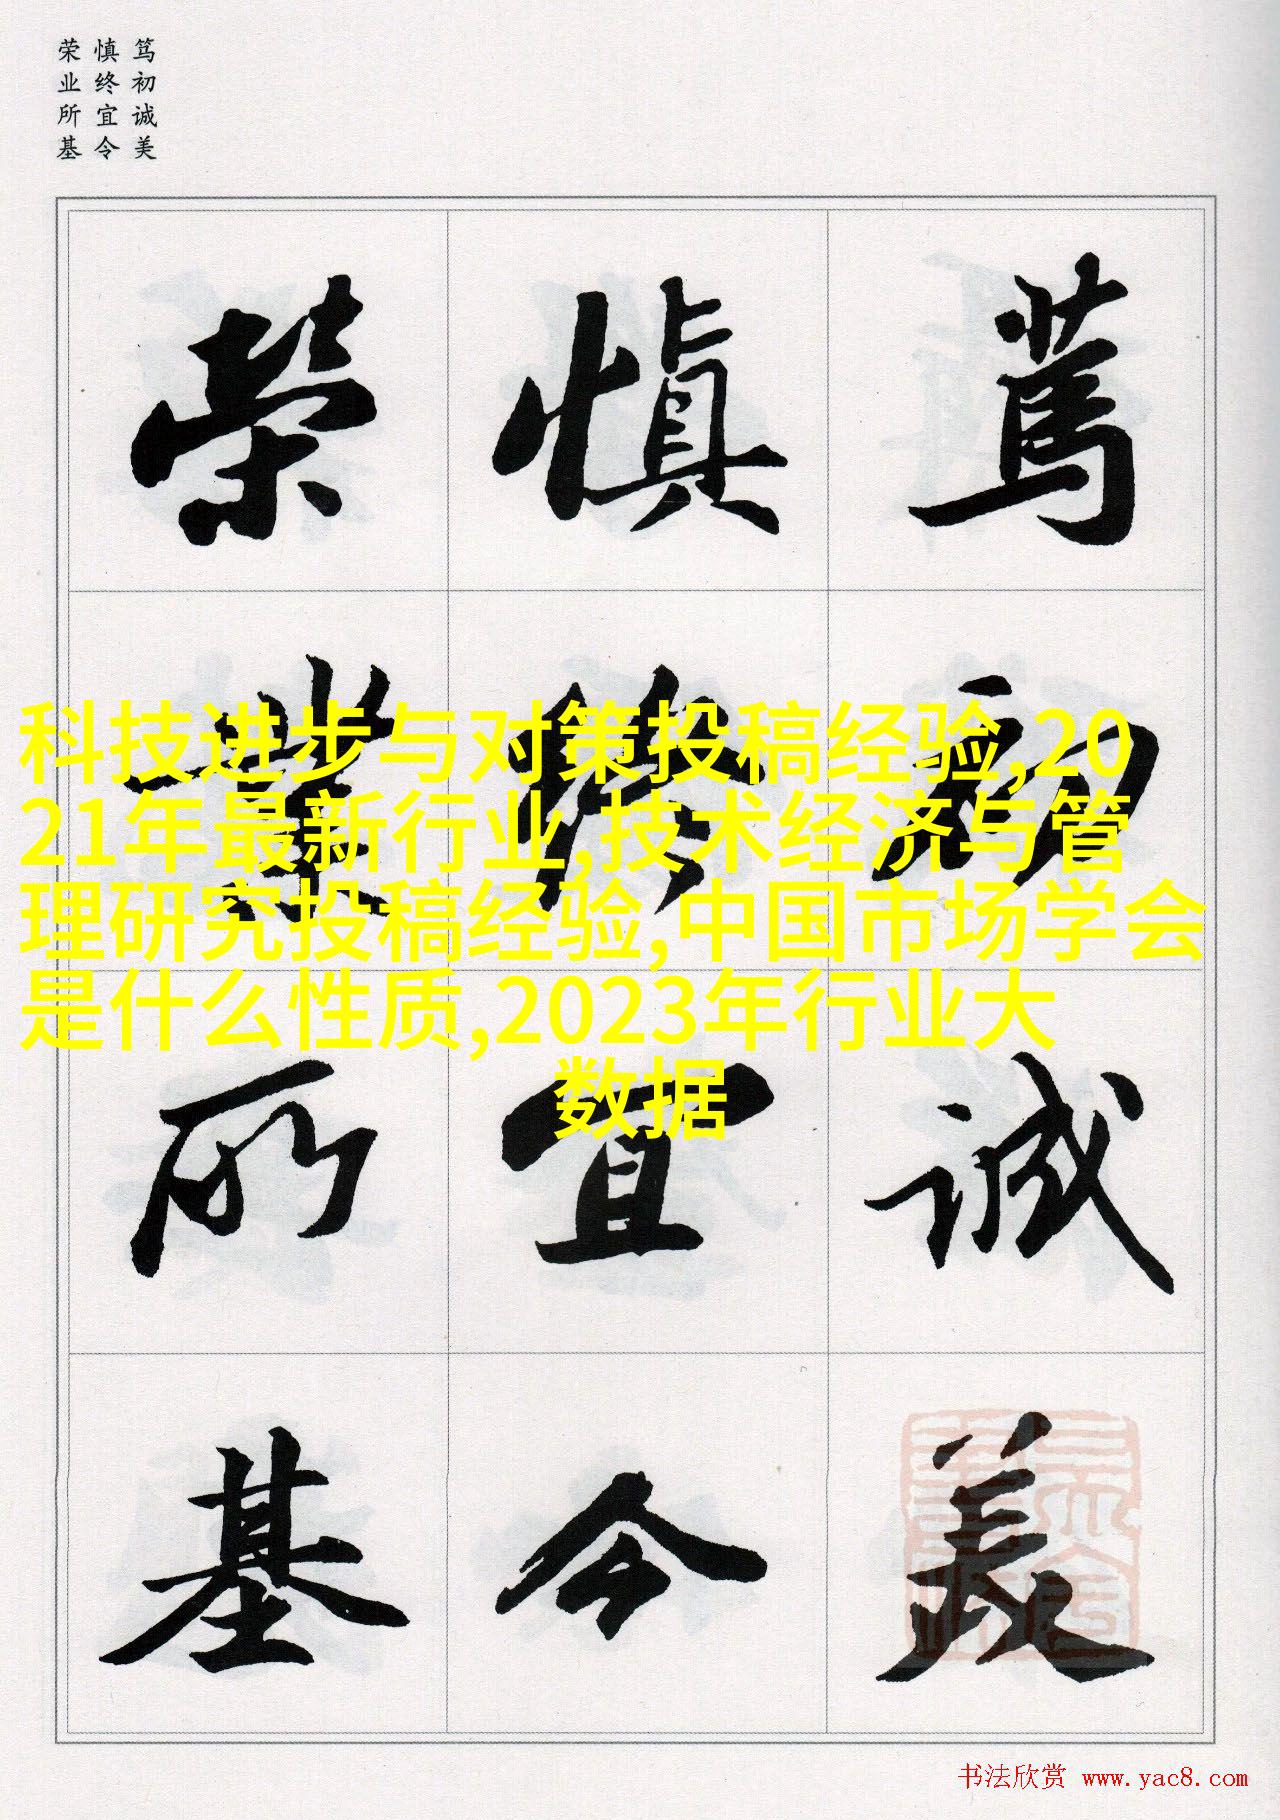 笃初诚美
慎终宜令
荣业所基
篤初誠美
慎終宜令
榮業所基
科技进步与对策投稿经验,20
21年最新行业,技术经济与管
理研究投稿经验,中国市场学会
是什么性质,2023年行业大
数据
书法欣赏 www.yac8.com